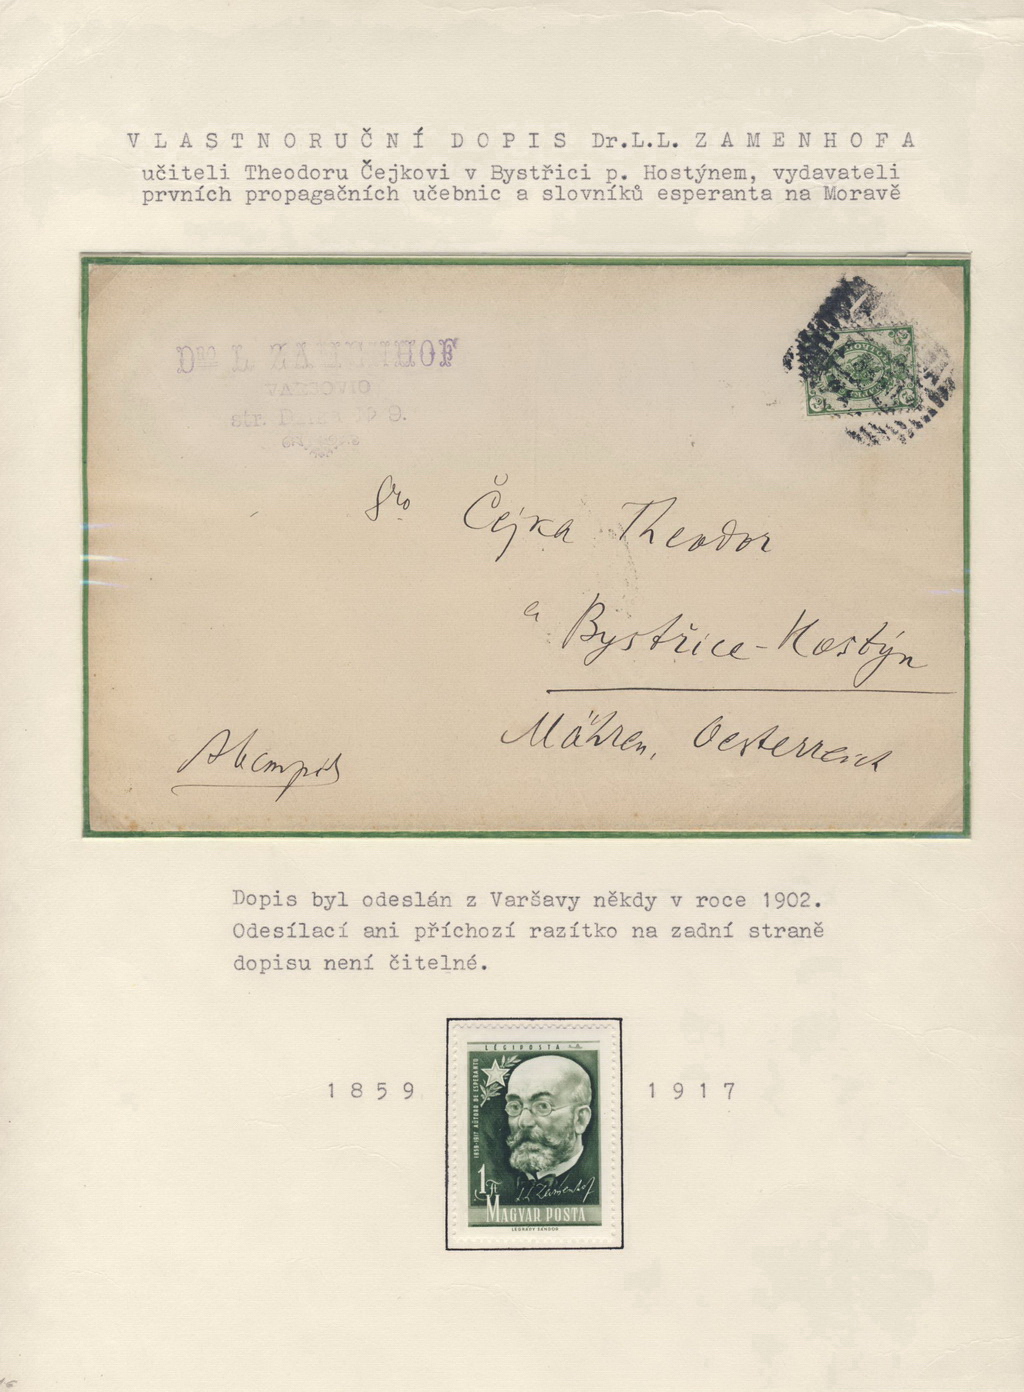 VLASTNORUČNÍ DOPIS Dr.L.L. ZAMENHOFA
učiteli Theodoru Čejkovi v Bystřici p. Hostýnem, vydavateli
prvních propagačních učebnic a slovníků esperanta na Moravě
L ZAMENHOF
VARSOVIO
str. 9.
Sro Čejka Theodor
Bystřice-Hostýn
Mähren, Oesterreich
Dopis byl odeslán z Varšavy někdy v roce 1902.
Odesílací ani příchozí razítko na zadní straně
dopisu není čitelné.
1859
1917
LÉGIPOSTA
AŬTORO DE ESPERANTO
1 Ft
L.L. Zamenhof
MAGYAR POSTA
LÉGRÁDY SÁNDOR